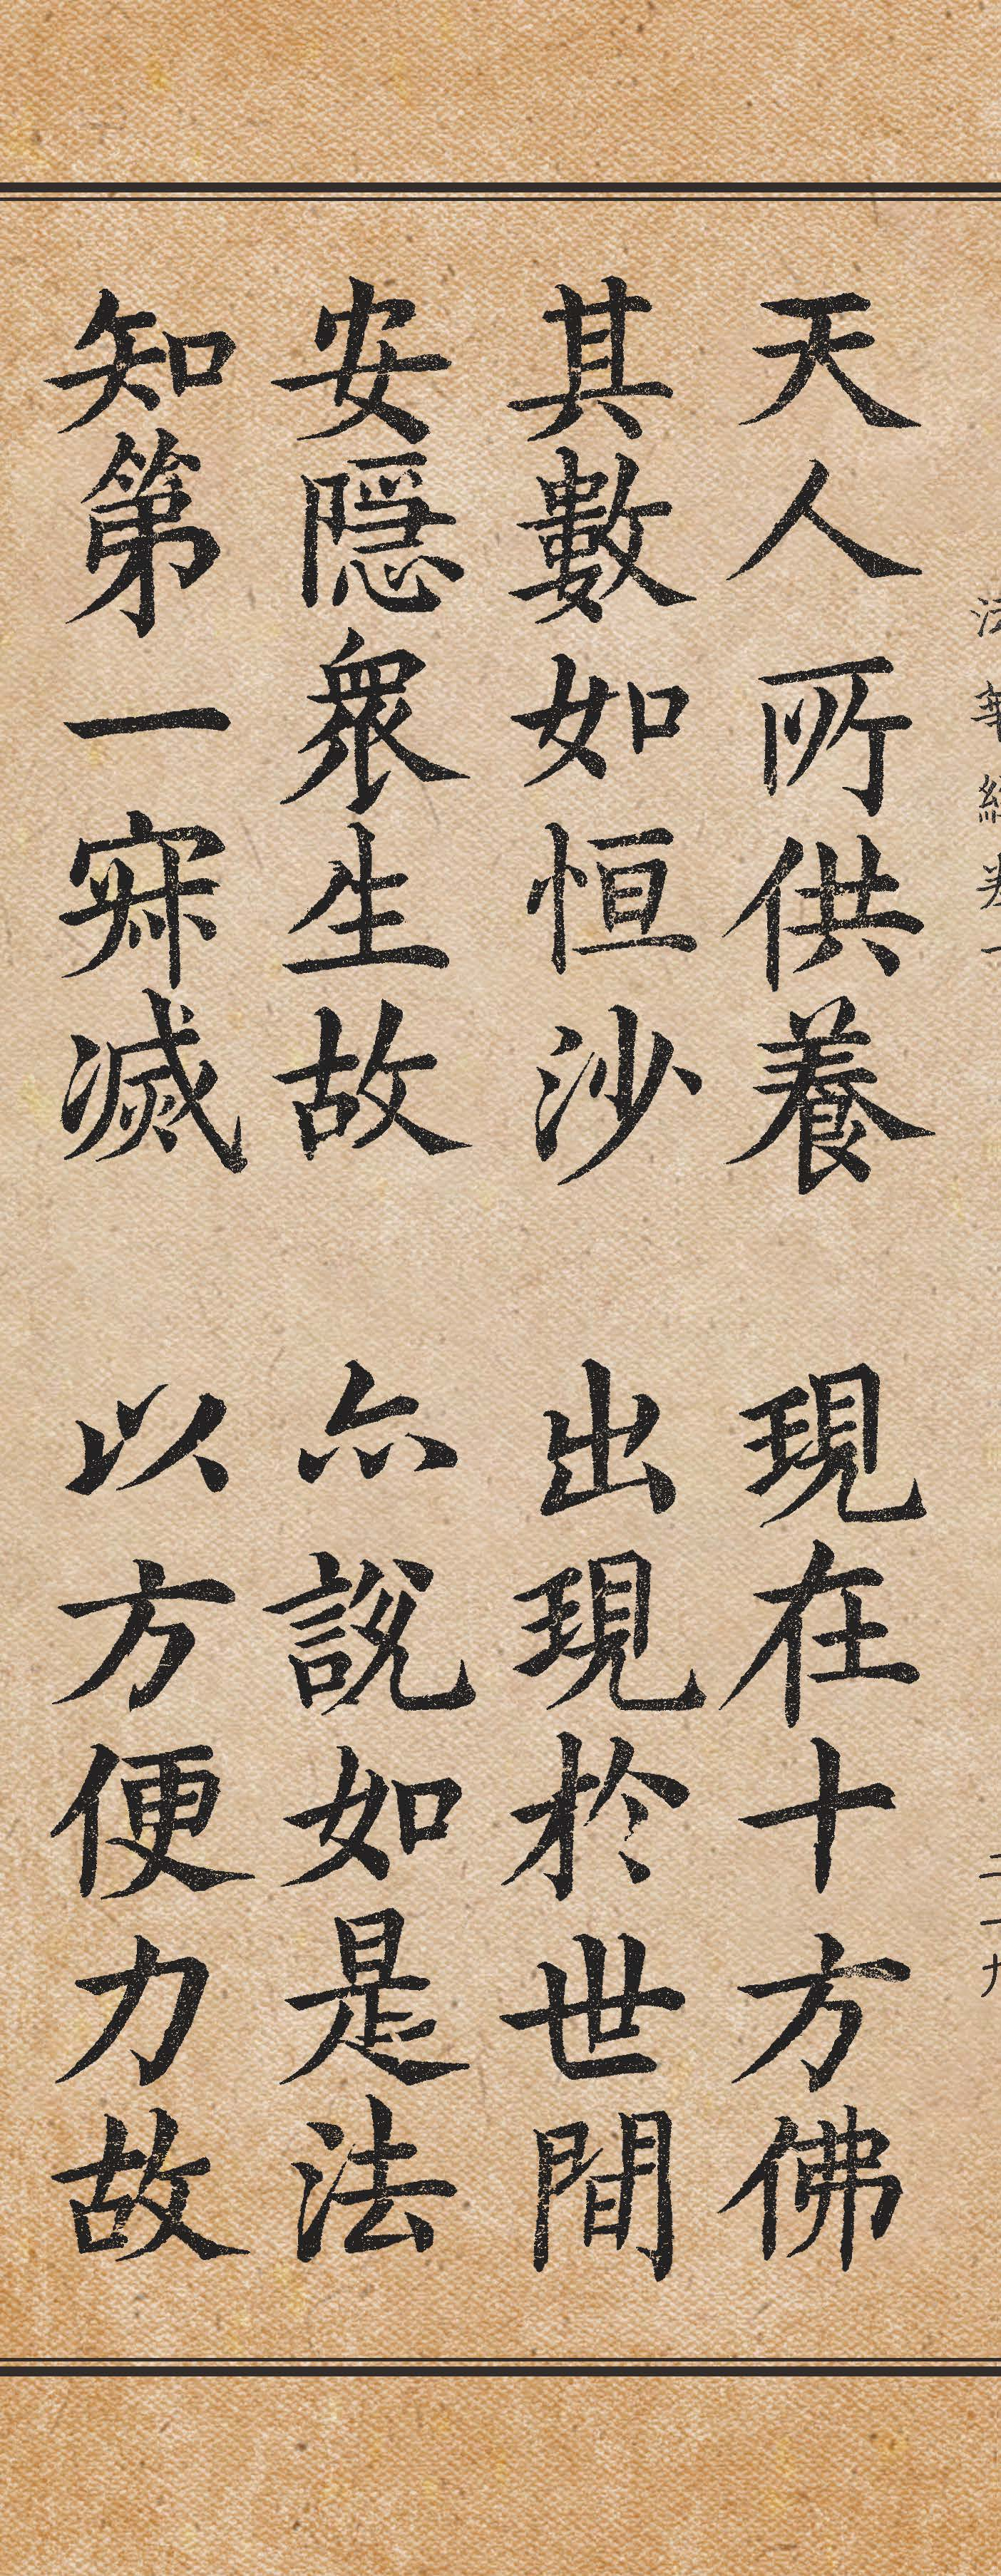 天人所供養　現在十方佛
其數如恒沙　出現於世間
安隱衆生故　亦說如是法
知第一寂滅　以方便力故